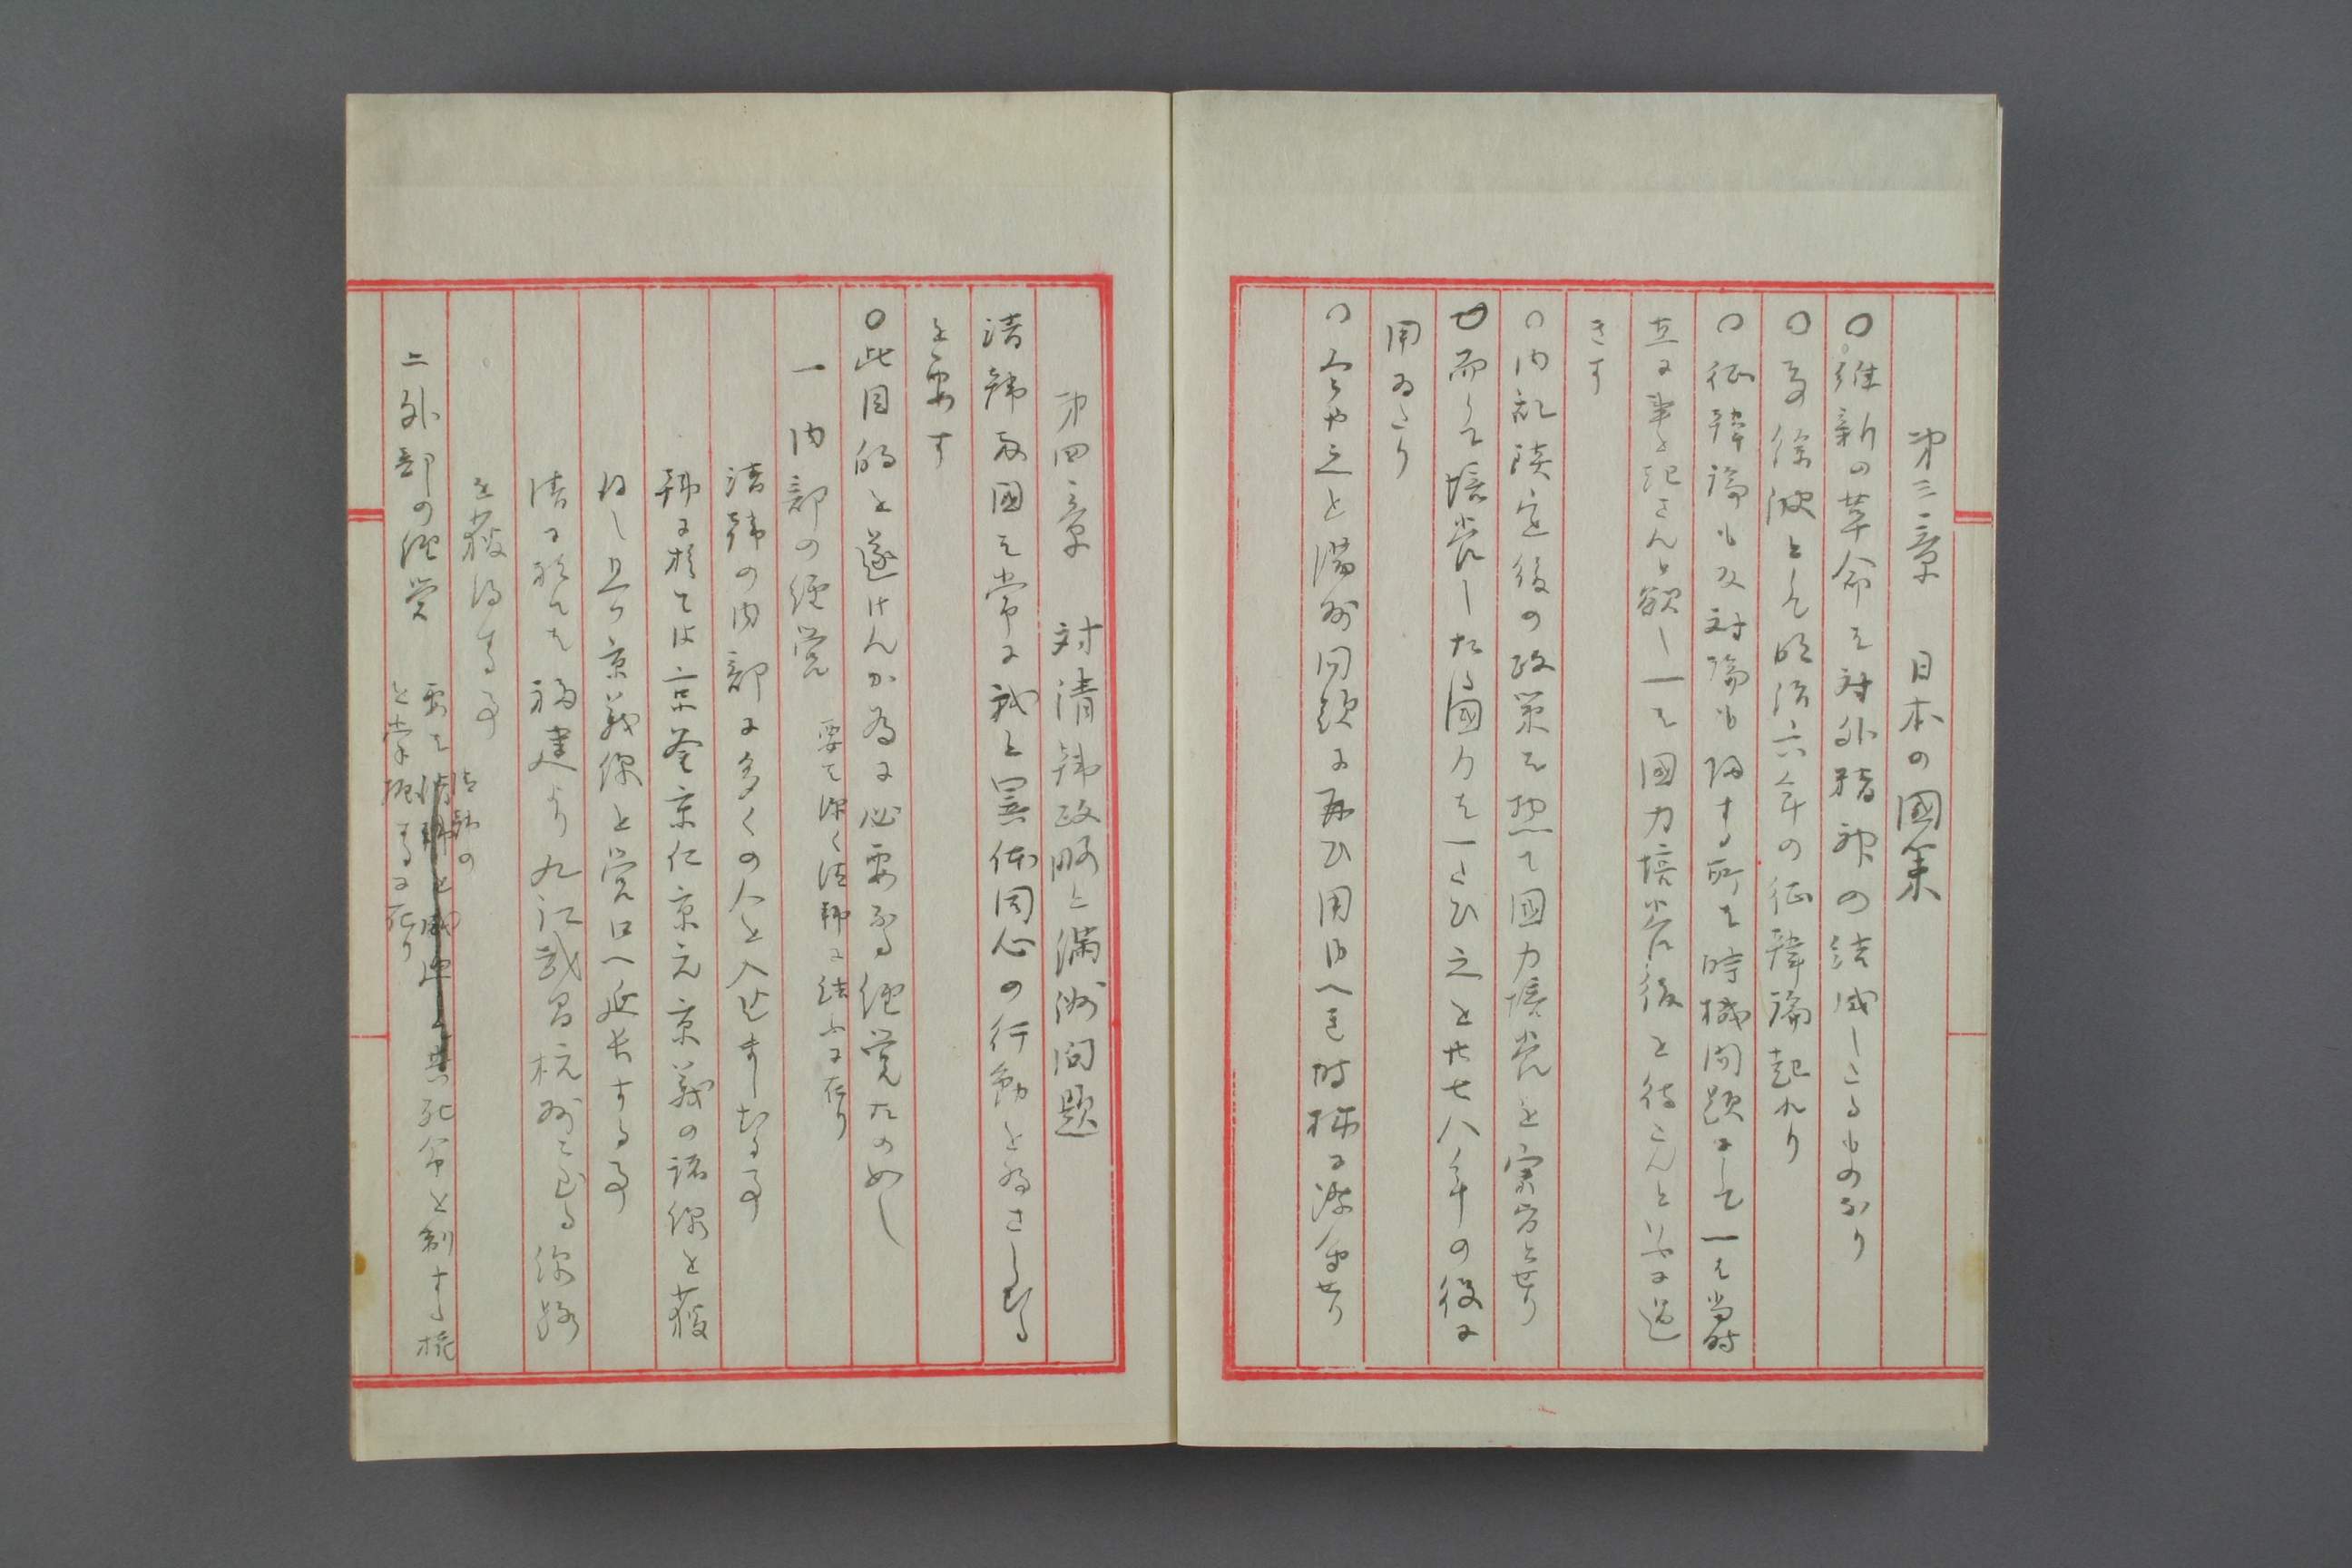 第三章 日本の國策
○維新の革命は対外精神の結成したるものなり
○其餘波として明治六年の征韓論起れり
○征韓論も反対論も帰する所は時機問題にして一は当時
直に事を起さんと欲し一は国力培養後を待たんと云ふに過
きす
○内乱戡定後の政策は惣て国力培養を宗旨とせり
○而して培養したる国力は一たひ之を廿七八年の役に
用ゐたり
○今や之を満州問題に再ひ用ゆへき時機に際会せり
第四章 対清韓政略と満洲問題
清韓両國は常に我と異体同心の行動を為さしむる
を要す
○此目的を遂けんか為に必要なる経営左の如し
一 内部の経営 要は深く清韓に結ふに在り
清韓の内部に多くの人を入せましむる事
韓に於ては京釜京仁京元京義の諸線を獲
得し且つ京義線を営口へ延長する事
清に於ては福建より九江武昌杭州に至る線路
を獲得する事
二 外部の経営 要は清韓の死命を制する権
を掌握するに在り